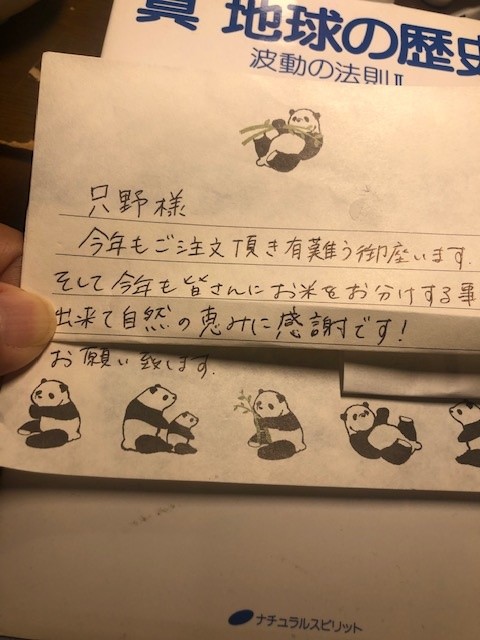 真 地球の歴史
波動の法則Ⅱ
只野様
今年もご注文頂き有難う御座います.
そして今年も皆さんにお米をお分けする事
出来て自然の恵みに感謝です!
お願い致します.
ナチュラルスピリット